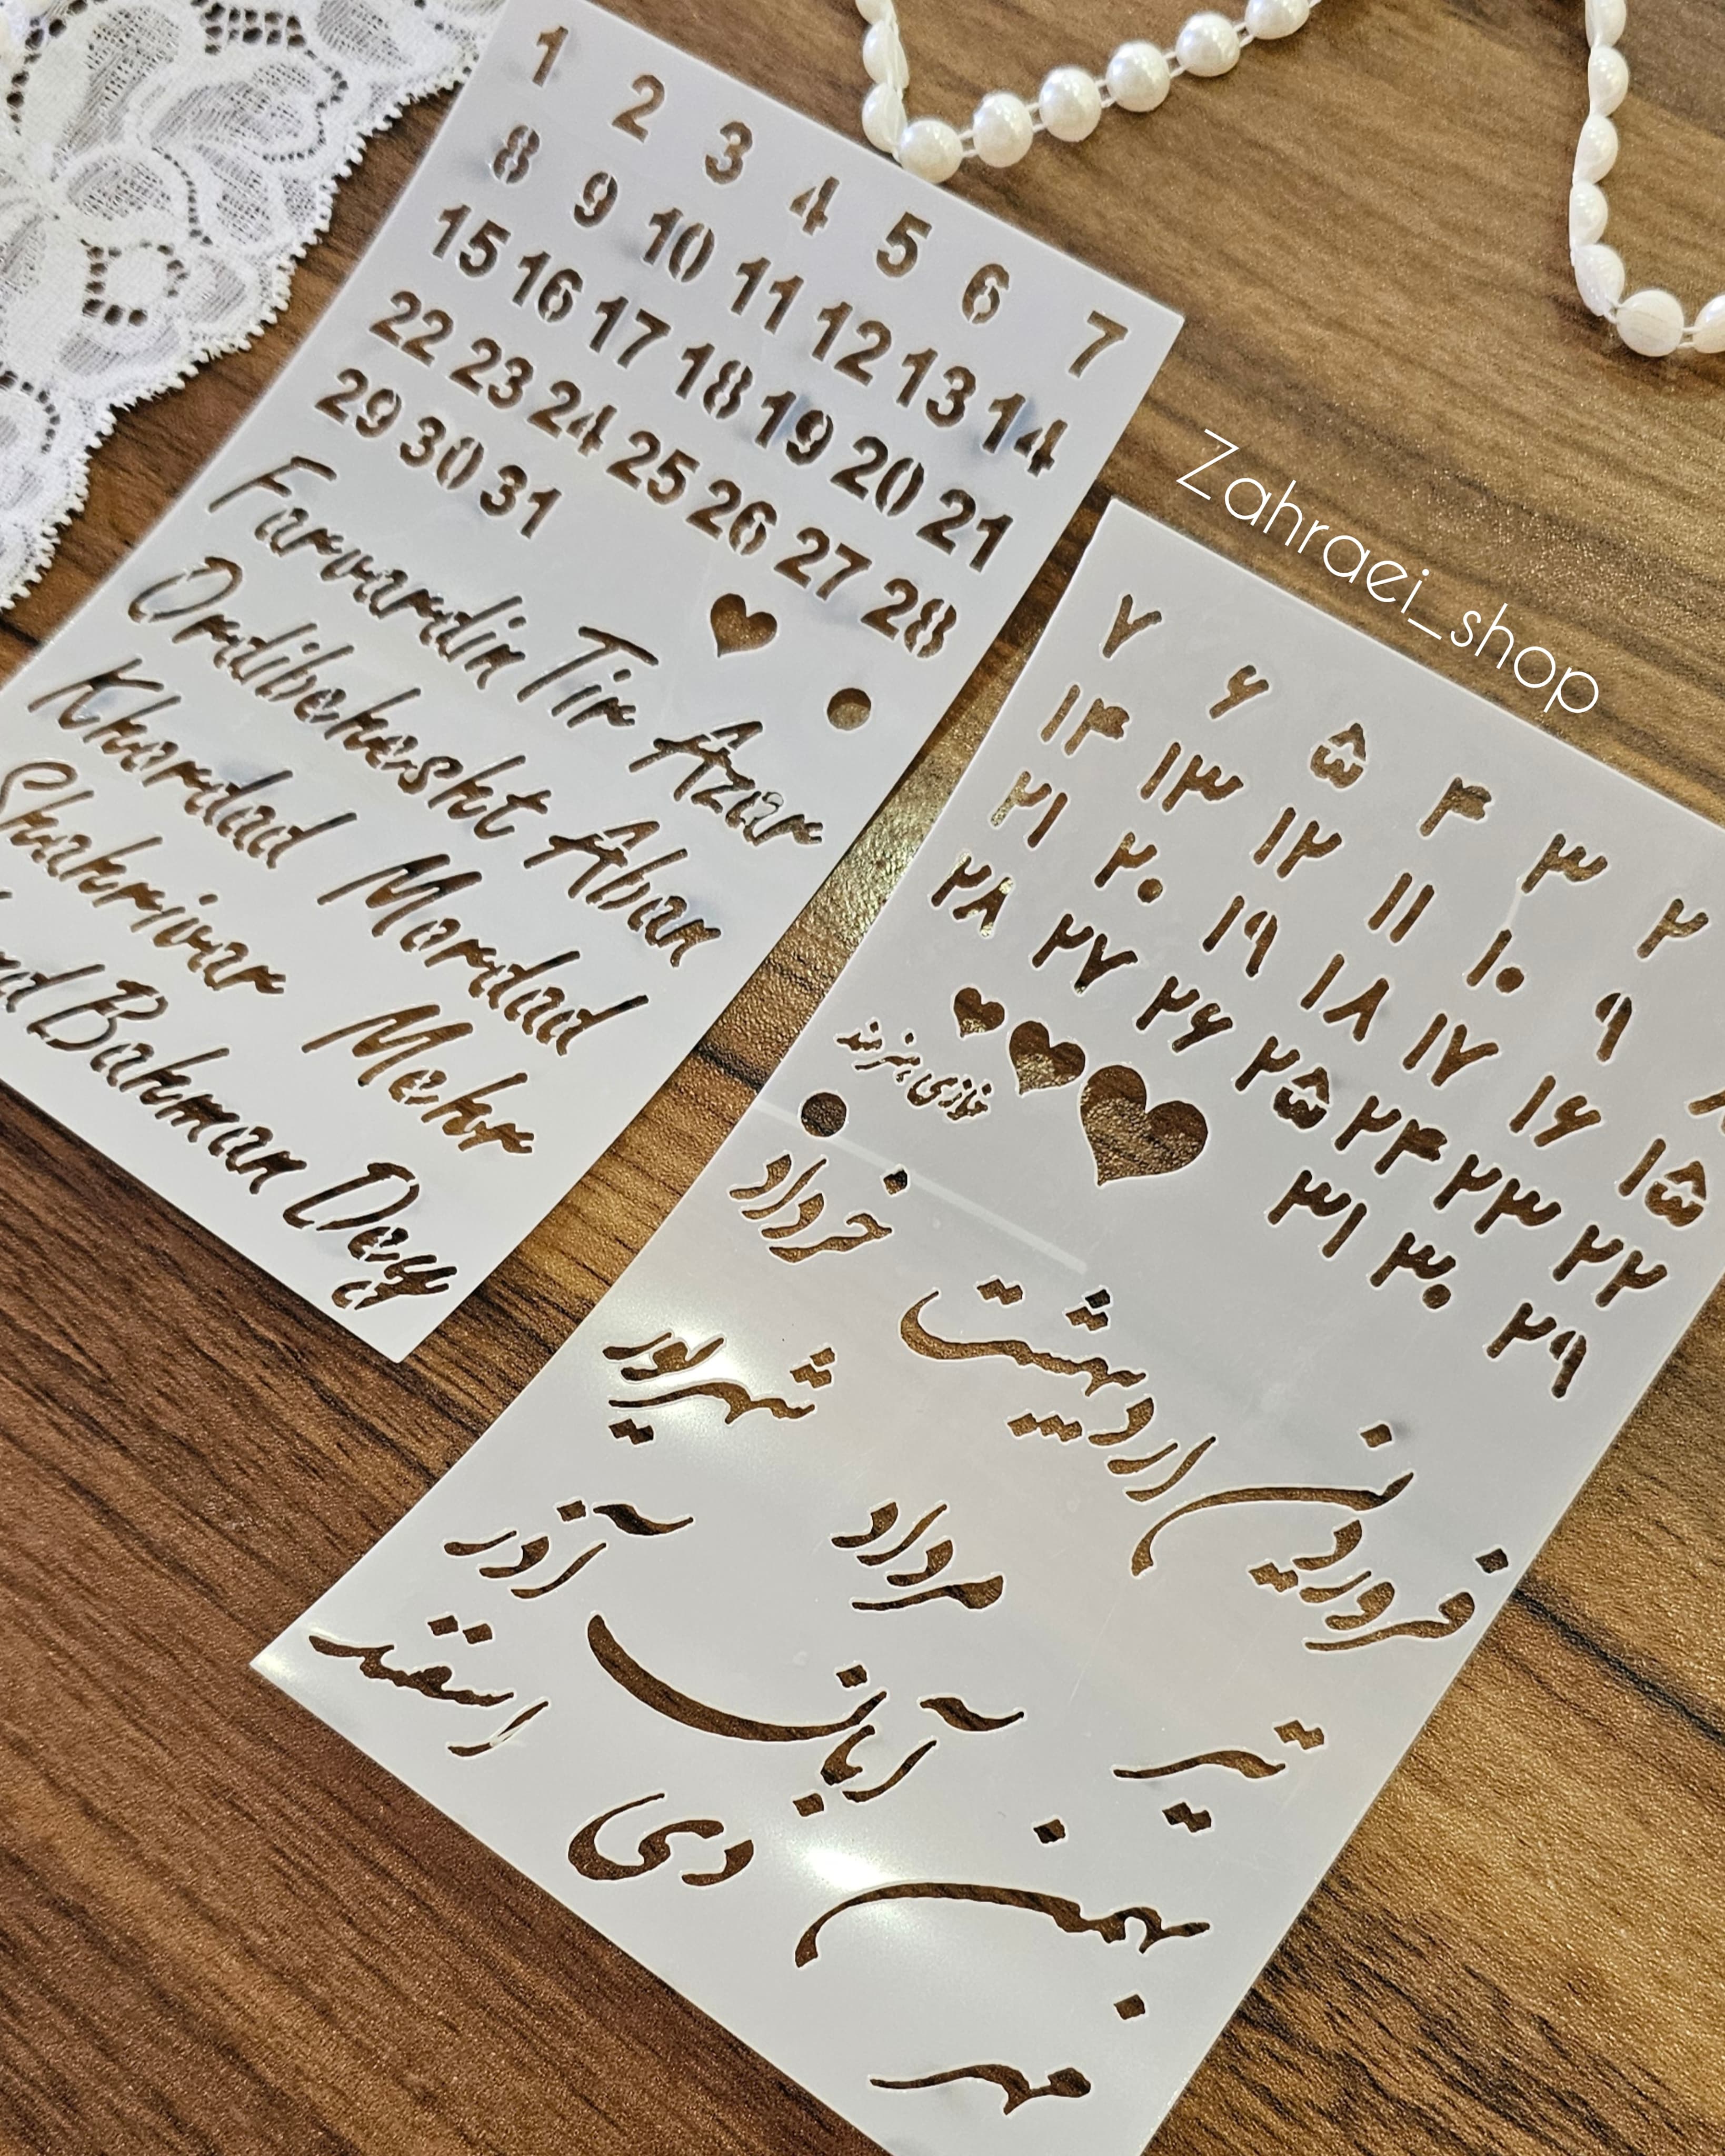 1 2 3 4 5 6 7
8 9 10 11 12 13 14
15 16 17 18 19 20 21
22 23 24 25 26 27 28
29 30 31
Farvardin Tir Azar
Ordibehesht Aban
Khordad Mordad
Shahrivar Mehr
Bahman Dey
Zahraei_shop
۲ ۳ ۴ ۵ ۶ ۷
۹ ۱۰ ۱۱ ۱۲ ۱۳ ۱۴
۱۵ ۱۶ ۱۷ ۱۸ ۱۹ ۲۰ ۲۱
۲۲ ۲۳ ۲۴ ۲۵ ۲۶ ۲۷ ۲۸
۲۹ ۳۰ ۳۱
نمازی هنرمند
فروردین اردیبهشت خرداد
تیر مرداد شهریور
مهر آبان آذر
بهمن دی اسفند